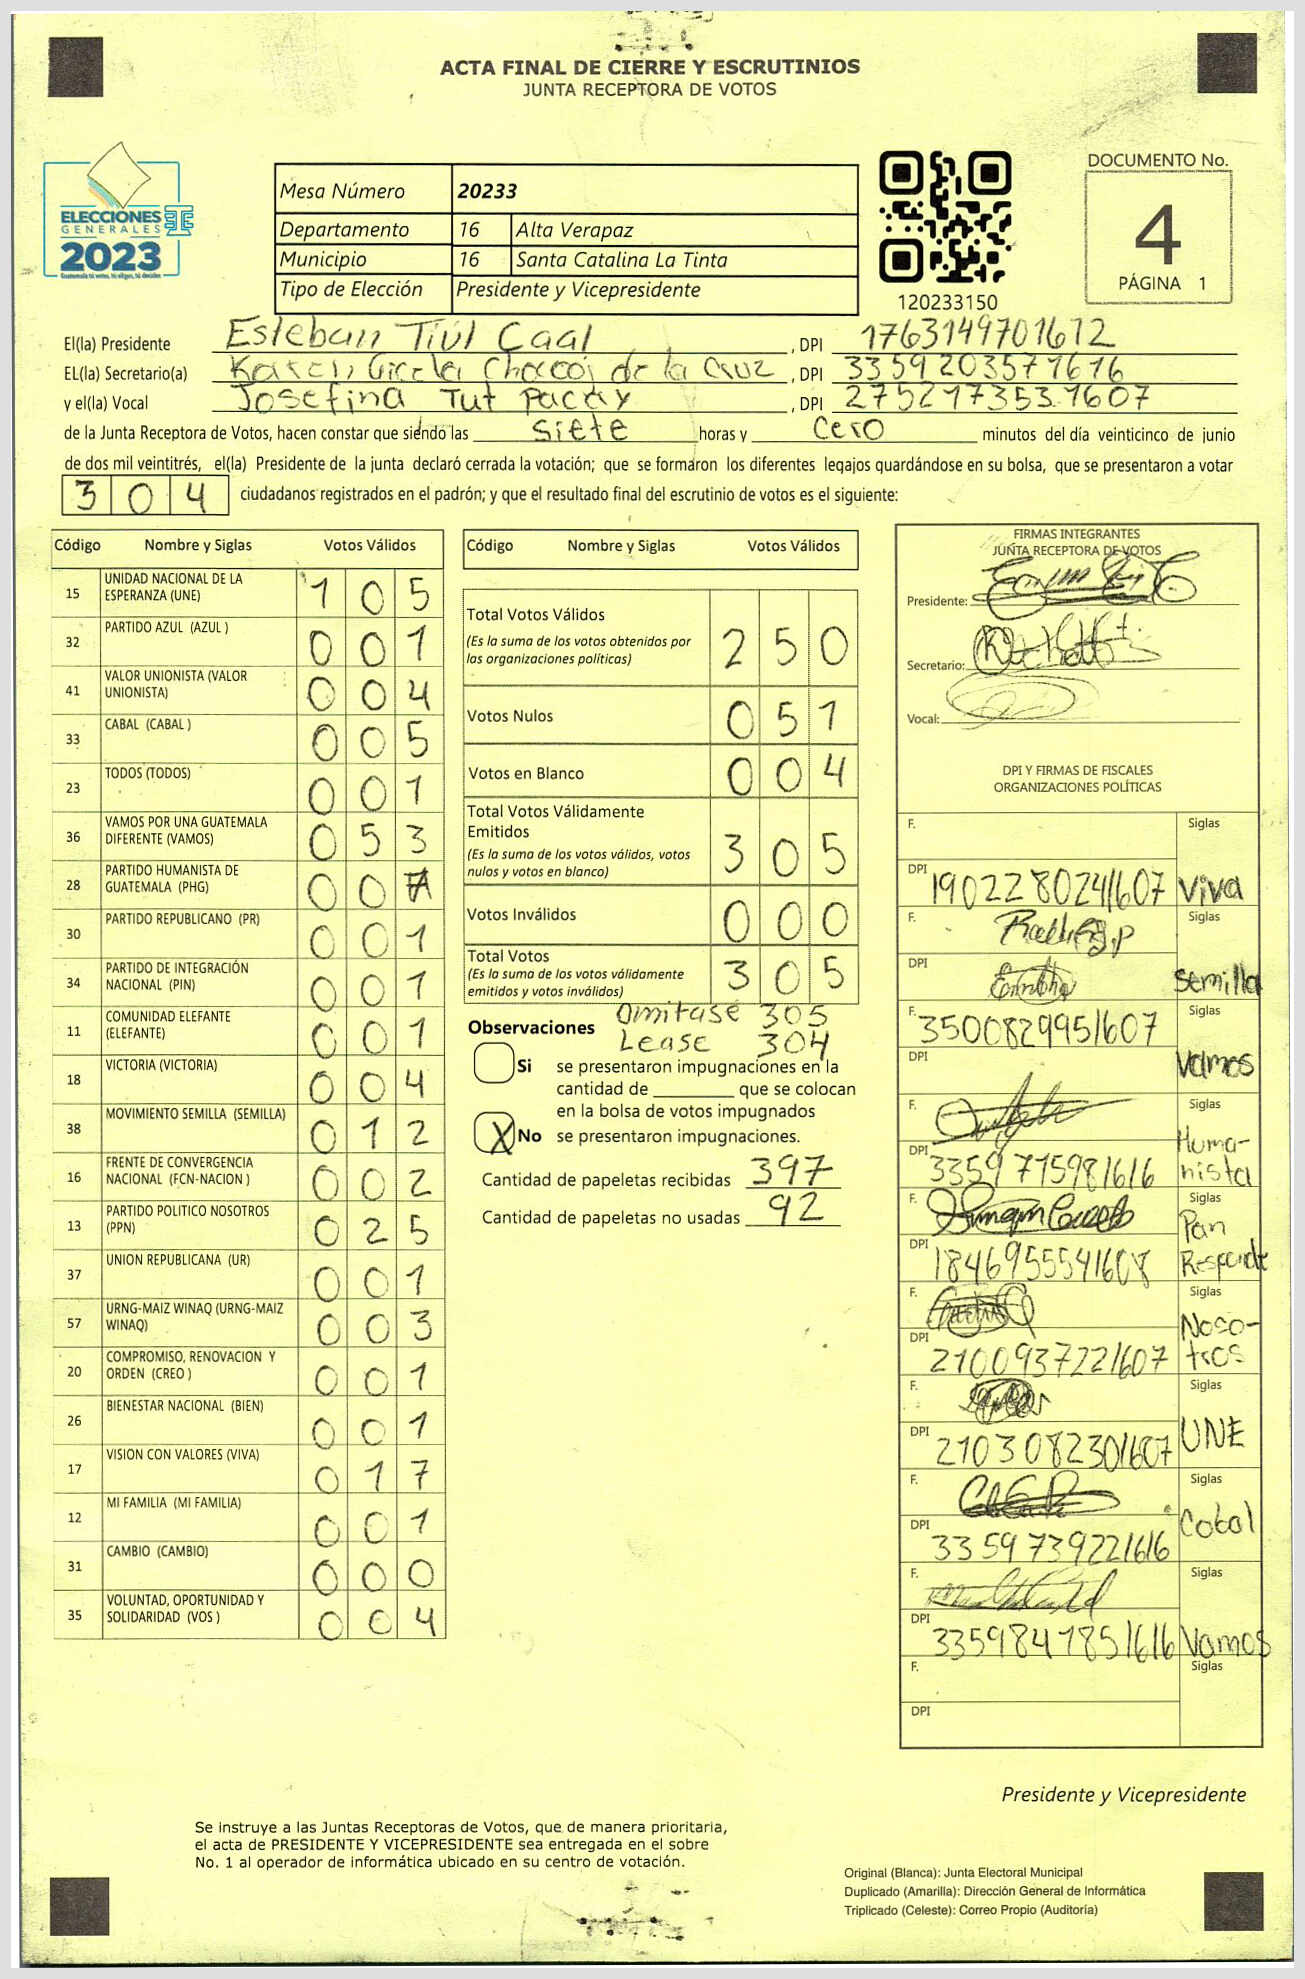 ACTA FINAL DE CIERRE Y ESCRUTINIOS
JUNTA RECEPTORA DE VOTOS
ELECCIONES
GENERALES
2023
Guatemala tú votas, tú eliges, tú decides
Mesa Número 20233
Departamento 16 Alta Verapaz
Municipio 16 Santa Catalina La Tinta
Tipo de Elección Presidente y Vicepresidente
120233150
DOCUMENTO No.
4
PÁGINA 1
El(la) Presidente Esteban Tiul Caal , DPI 1763149701612
EL(la) Secretario(a) Karen Gicela Chocooj de la Cruz , DPI 3359203571616
y el(la) Vocal Josefina Tut Pacay , DPI 2752173531607
de la Junta Receptora de Votos, hacen constar que siendo las siete horas y cero minutos del día veinticinco de junio
de dos mil veintitrés, el(la) Presidente de la junta declaró cerrada la votación; que se formaron los diferentes legajos quardándose en su bolsa, que se presentaron a votar
304 ciudadanos registrados en el padrón; y que el resultado final del escrutinio de votos es el siguiente:
Código Nombre y Siglas Votos Válidos
15 UNIDAD NACIONAL DE LA ESPERANZA (UNE) 105
32 PARTIDO AZUL (AZUL ) 001
41 VALOR UNIONISTA (VALOR UNIONISTA) 004
33 CABAL (CABAL ) 005
23 TODOS (TODOS) 001
36 VAMOS POR UNA GUATEMALA DIFERENTE (VAMOS) 053
28 PARTIDO HUMANISTA DE GUATEMALA (PHG) 007
30 PARTIDO REPUBLICANO (PR) 001
34 PARTIDO DE INTEGRACIÓN NACIONAL (PIN) 001
11 COMUNIDAD ELEFANTE (ELEFANTE) 001
18 VICTORIA (VICTORIA) 004
38 MOVIMIENTO SEMILLA (SEMILLA) 012
16 FRENTE DE CONVERGENCIA NACIONAL (FCN-NACION ) 002
13 PARTIDO POLITICO NOSOTROS (PPN) 025
37 UNION REPUBLICANA (UR) 001
57 URNG-MAIZ WINAQ (URNG-MAIZ WINAQ) 003
20 COMPROMISO, RENOVACION Y ORDEN (CREO ) 001
26 BIENESTAR NACIONAL (BIEN) 001
17 VISION CON VALORES (VIVA) 017
12 MI FAMILIA (MI FAMILIA) 001
31 CAMBIO (CAMBIO) 000
35 VOLUNTAD, OPORTUNIDAD Y SOLIDARIDAD (VOS ) 004
Código Nombre y Siglas Votos Válidos
Total Votos Válidos 250
(Es la suma de los votos obtenidos por
las organizaciones políticas)
Votos Nulos 051
Votos en Blanco 004
Total Votos Válidamente
Emitidos 305
(Es la suma de los votos válidos, votos
nulos y votos en blanco)
Votos Inválidos 000
Total Votos 305
(Es la suma de los votos válidamente
emitidos y votos inválidos)
Omitase 305
Observaciones
Lease 304
Si se presentaron impugnaciones en la
cantidad de que se colocan
en la bolsa de votos impugnados
X No se presentaron impugnaciones.
Cantidad de papeletas recibidas 397
Cantidad de papeletas no usadas 92
FIRMAS INTEGRANTES
JUNTA RECEPTORA DE VOTOS
Presidente:
Secretario:
Vocal:
DPI Y FIRMAS DE FISCALES
ORGANIZACIONES POLÍTICAS
F. Siglas
DPI 1902280241607 Viva
F. Siglas
DPI Semilla
F. 3500829951607 Siglas
DPI Vamos
F. Siglas
DPI 3359715981616 Huma-
nista
F. Siglas
DPI 1846955541608 Pan
Responde
F. Siglas
DPI 2100937221607 Noso-
tros
F. Siglas
DPI 2103082301607 UNE
F. Siglas
DPI 3359739221616 Cobal
F. Siglas
DPI 3359841851616 Vamos
F. Siglas
DPI
Presidente y Vicepresidente
Se instruye a las Juntas Receptoras de Votos, que de manera prioritaria,
el acta de PRESIDENTE Y VICEPRESIDENTE sea entregada en el sobre
No. 1 al operador de informática ubicado en su centro de votación.
Original (Blanca): Junta Electoral Municipal
Duplicado (Amarilla): Dirección General de Informática
Triplicado (Celeste): Correo Propio (Auditoría)